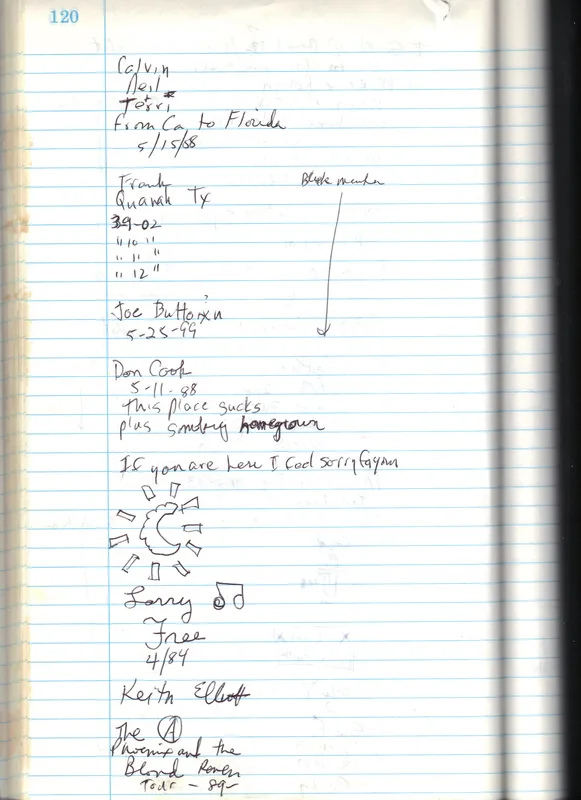 120
Calvin
Neil
+
Terri
From Ca to Florida
5/15/88
Frank
Quanah Tx
Black marker
39-02
"10 "
" 11 "
" 12 "
Joe Buttorxn
?
5-25-99
Don Cook
5-11-88
this place sucks
plus smoking homegrown
If you are here I feel sorry for you
Larry
Free
4/84
Keith Elliott
The A
Phoenix and the
Blond Raven
Tour - 89-